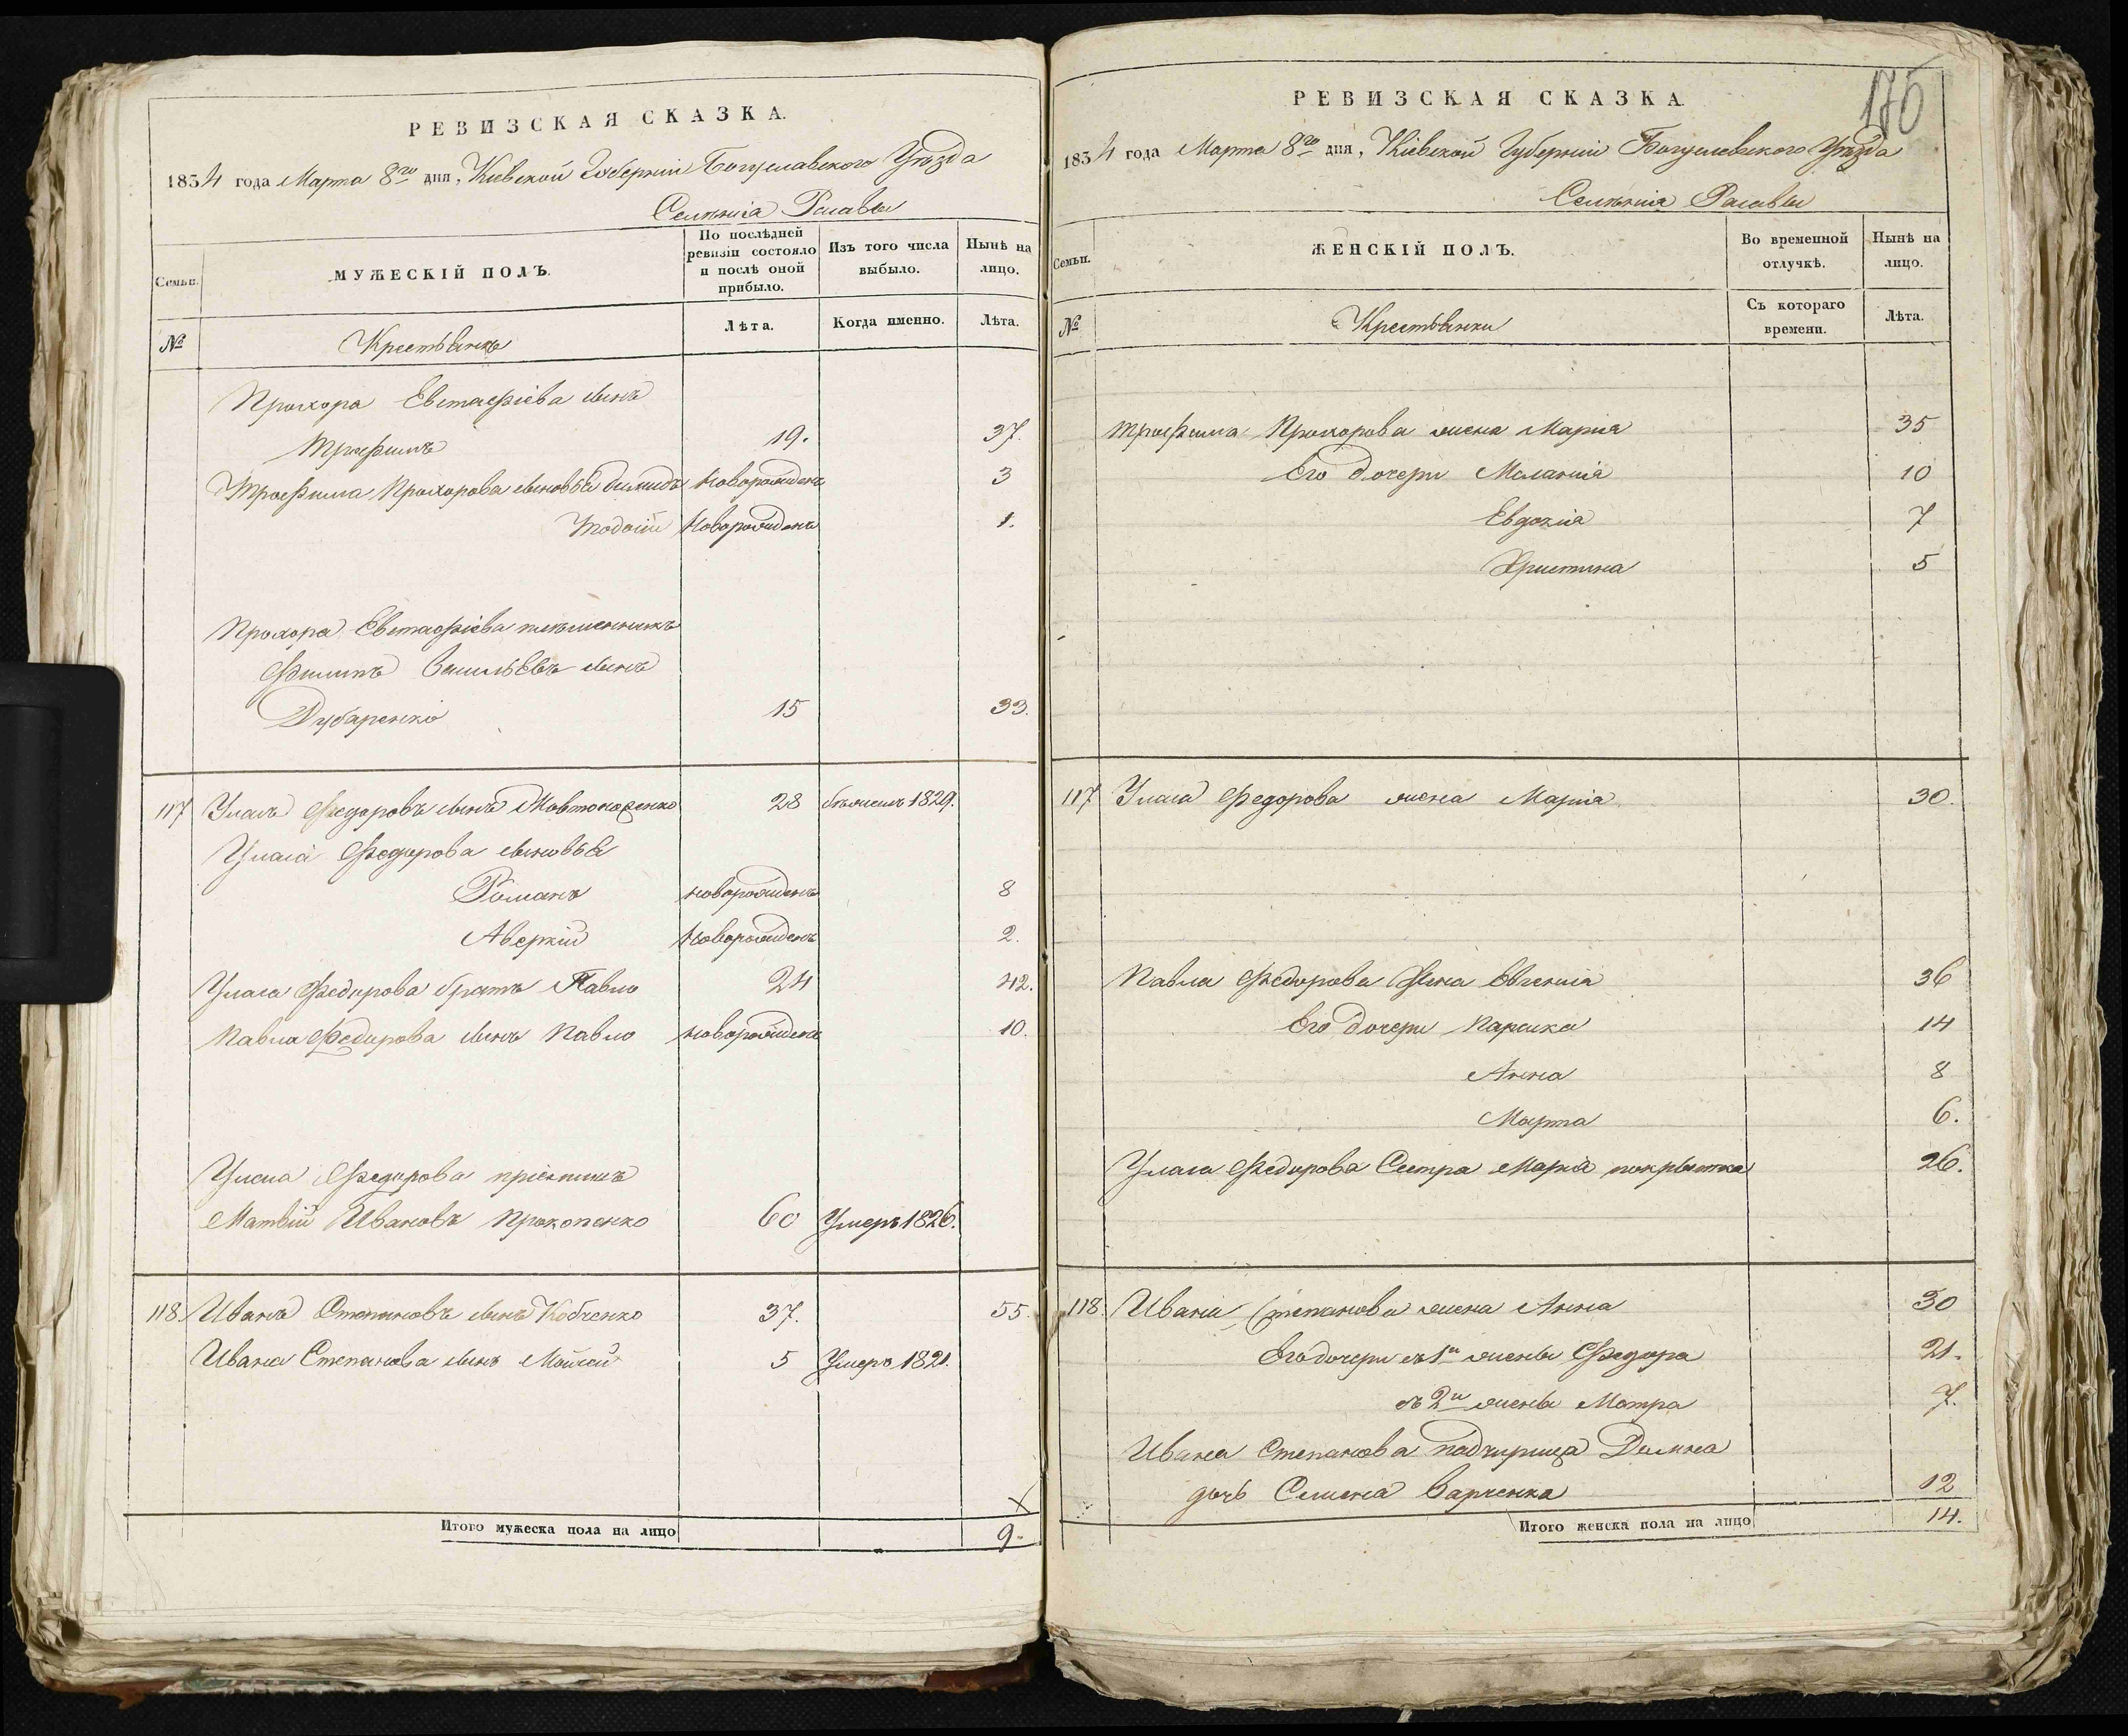 РЕВИЗСКАЯ СКАЗКА.
1834 года Марта 8го дня, Кіевской Губерніи Богуславского Уѣзда
Селенія Расавы
Семьи.
МУЖЕСКІЙ ПОЛЪ.
По послѣдней ревизіи состояло и послѣ оной прибыло.
Изъ того числа выбыло.
Нынѣ на лицо.
№
Крестьянъ
Лѣта.
Когда именно.
Лѣта.
Прохора Евстафіева сынъ
Трофимъ 19. 37.
Трофима Прохорова сыновья новорожденъ 3
новорожденъ 1.
Прохора Евстафіева племенникъ
Филипъ Васильевъ сынъ
Дударенко 15 33.
117 Уласъ Федоровъ сынъ 28 1829.
Уласа Федорова сыновья
Романъ новорожденъ 8
Аверкій новорожденъ 2.
Уласа Федорова братъ Павло 24 42.
Павла Федорова сынъ Павло новорожденъ 10.
Уласа Федорова пріемишъ
Матвій Ивановъ Прокопенко 60 Умеръ 1826.
118. Иванъ Степановъ сынъ Кобченко 37. 55.
Ивана Степанова сынъ Мойсей 5 Умеръ 1821.
Итого мужеска пола на лицо 9.
176
РЕВИЗСКАЯ СКАЗКА.
1834 года Марта 8го дня, Кіевской Губерніи Богуславского Уѣзда
Селенія Расавы
Семьи.
ЖЕНСКІЙ ПОЛЪ.
Во временной отлучкѣ.
Нынѣ на лицо.
№
Крестьянки
Съ котораго времени.
Лѣта.
Трофима Прохорова жена Марія 35
Его дочери Маланія 10
Евдокія 7
Христина 5
117 Уласа Федорова жена Марія 30.
Павла Федорова жена Евгенія 36
Его дочери Параска 14
Анна 8
Марта 6.
Уласа Федорова Сестра Марія покрытка 26.
118. Ивана Степанова жена Анна 30
Его дочери съ 1й жены Федора 21.
съ 2й жены Мотра 7.
Ивана Степанова падчирица Домна
дочь Семена Варченка 12
Итого женска пола на лицо 14.